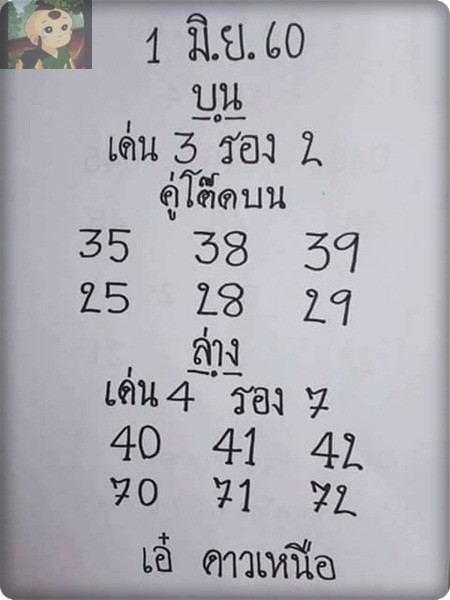 1 มิ.ย. 60
บน
เด่น 3 รอง 2
คู่โต๊ดบน
35 38 39
25 28 29
ล่าง
เด่น 4 รอง 7
40 41 42
70 71 72
เอ๋ คาวเหนือ